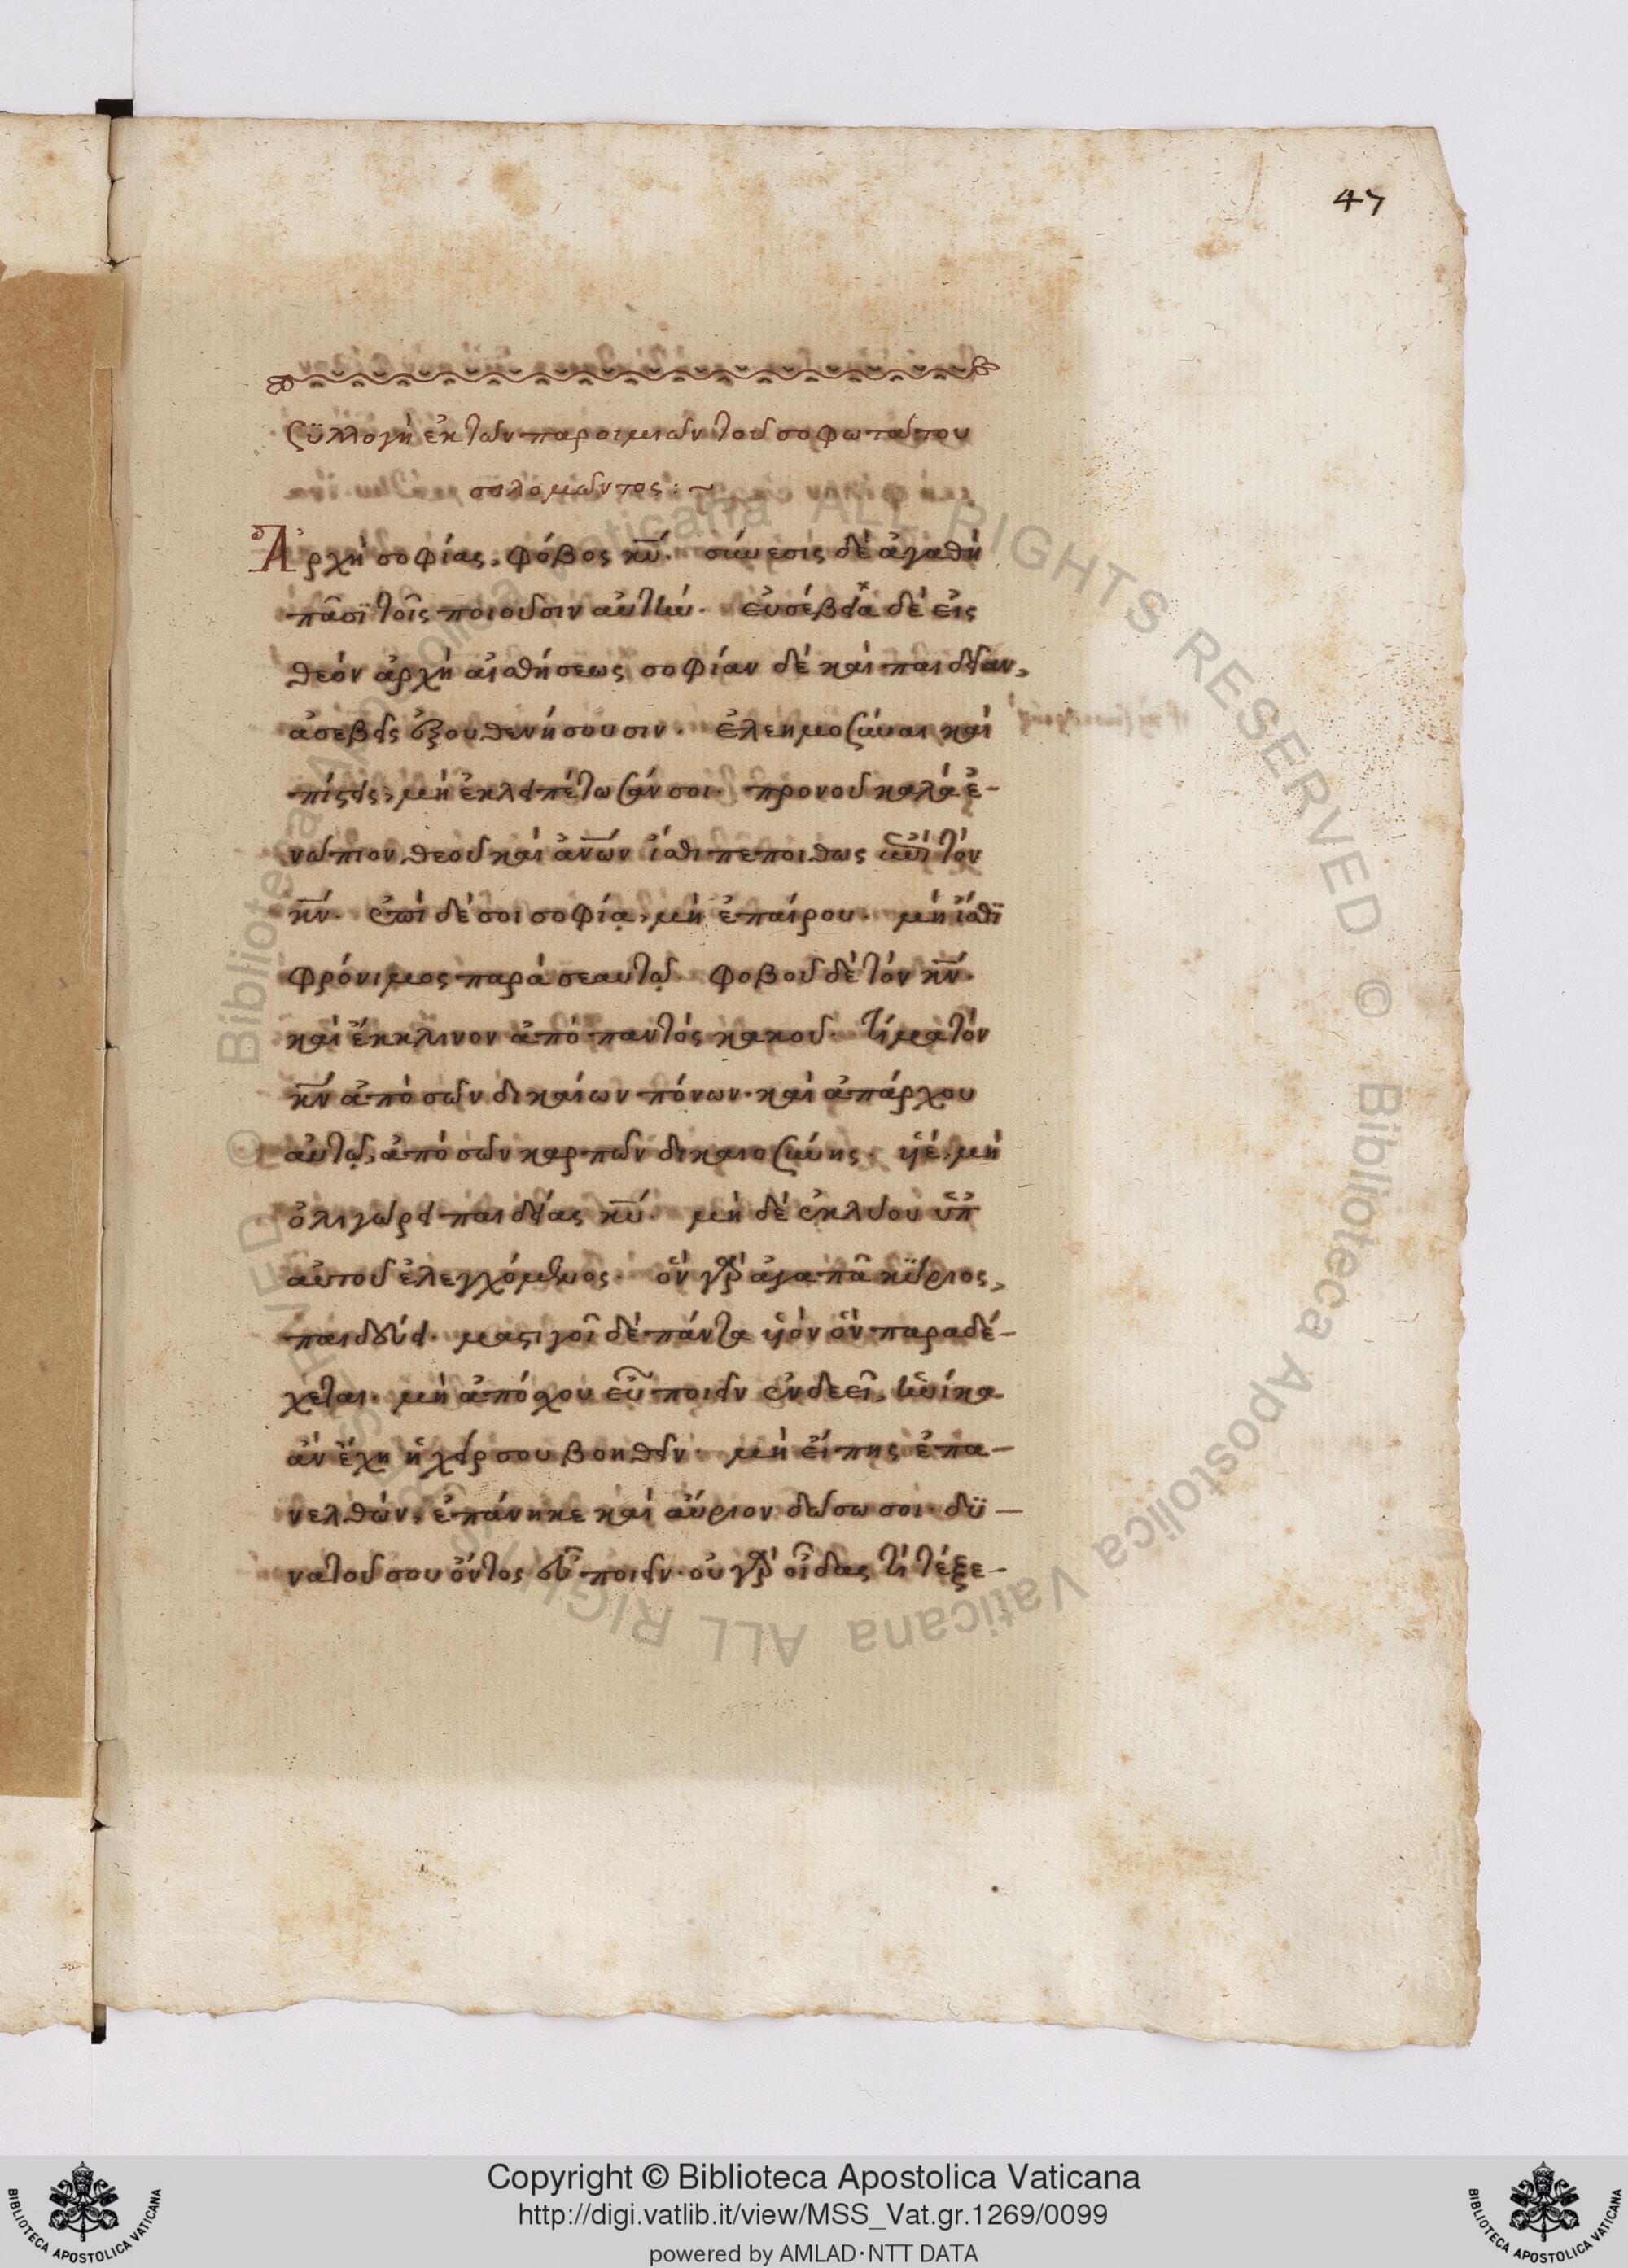 47
Συλλογὴ ἐκ τῶν παροιμιῶν τοῦ σοφωτάτου
σολομῶντος : ~
Ἀρχὴ σοφίας, φόβος κ̅υ̅. σύνεσις δὲ ἀγαθὴ
πᾶσϊ τοῖς ποιοῦσιν αὐτήν. εὐσέβεια δὲ εἰς
θεὸν ἀρχὴ αἰσθήσεως σοφίαν δὲ καὶ παιδείαν,
ἀσεβεῖς ἐξουθενήσουσιν. ἐλεημοσύναι καὶ
πίστεις, μὴ ἐκλειπέτωσάν σοι. προνοοῦ καλὰ ἐ-
νώπιον θεοῦ καὶ ἀν̅ω̅ν ἴσθι πεποιθως ἐπὶ τὸν
κ̅ν̅. ἐπὶ δὲ σοι σοφίᾳ, μὴ ἐπαίρου. μὴ ἴσθϊ
φρόνιμος παρὰ σεαυτῷ. φοβοῦ δὲ τὸν κ̅ν̅.
καὶ ἔκκλινον ἀπὸ παντὸς κακοῦ. τίμα τὸν
κ̅ν̅ ἀπὸ σῶν δικαίων πόνων. καὶ ἀπάρχου
αὐτῷ, ἀπὸ σῶν καρπῶν δικαιοσύνης. ϋἱέ, μὴ
ὀλιγώρει παιδείας κ̅υ̅. μὴ δὲ ἐκλύου ὑπ
αὐτοῦ ἐλεγχόμενος. ὃν γὰρ ἀγαπᾶ κϋριος,
παιδεύει. μαστιγοῖ δὲ πάντα ϋἱὸν ὃν παραδέ-
χεται. μὴ ἀπόσχου εὖ ποιεῖν ἐνδεεῖ, ἡνίκα
ἂν ἔχη ἡ χείρ σου βοηθεῖν. μὴ εἴπης ἐπα-
νελθὼν, ἐπάνηκε καὶ αὔριον δώσω σοι. δϋ-
νατοῦ σου ὄντος εὖ ποιεῖν. οὐ γὰρ οἶδας τί τέξε-
Copyright © Biblioteca Apostolica Vaticana
http://digi.vatlib.it/view/MSS_Vat.gr.1269/0099
powered by AMLAD·NTT DATA
BIBLIOTECA APOSTOLICA VATICANA
BIBLIOTECA APOSTOLICA VATICANA
© Biblioteca Apostolica Vaticana ALL RIGHTS RESERVED © Biblioteca Apostolica Vaticana ALL RIGHTS RESERVED